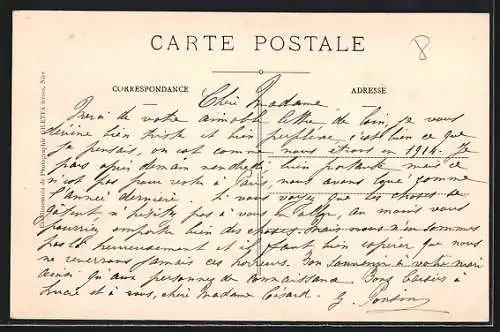 CARTE POSTALE
CORRESPONDANCE
ADRESSE
GILETTA frères, Nice
Chère Madame
Merci de votre aimable lettre de loin, je vous
devine bien triste et bien perplexe, c'est bien ce que
je pensais, on est comme nous étions en 1914. Je
pars après demain vendredi, bien portante mais ce
n'est pas pour rester à Paris, nous avons loué comme
l'année dernière. Si vous voyez que les choses se
gâtent, n'hésitez pas à vous, au moins vous
pourriez emporter bien des choses. Mais nous n'en sommes
pas là heureusement et il faut bien espérer que nous
ne reverrons jamais ces horreurs. Bon souvenir à votre mari
ainsi qu'aux personnes de connaissance. Bons baisers à
Lucie et à vous, chère Madame